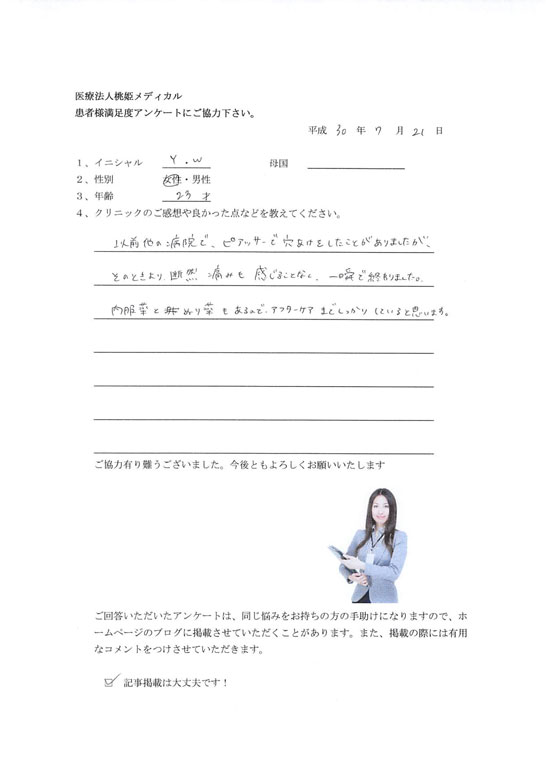 医療法人桃姫メディカル
患者様満足度アンケートにご協力下さい。
平成 30 年 7 月 21 日
1、イニシャル Y.W 母国
2、性別 女性・男性
3、年齢 23 才
4、クリニックのご感想や良かった点などを教えてください。
以前他の病院で、ピアッサーで穴あけをしたことがありましたが、
そのときより、断然 痛みも 感じることなく、一瞬で終わりました。
内服薬と ぬり薬もあるので、アフターケアまでしっかりしていると思います。
ご協力有り難うございました。今後ともよろしくお願いいたします
ご回答いただいたアンケートは、同じ悩みをお持ちの方の手助けになりますので、ホ
ームページのブログに掲載させていただくことがあります。また、掲載の際には有用
なコメントをつけさせていただきます。
☑ 記事掲載は大丈夫です！